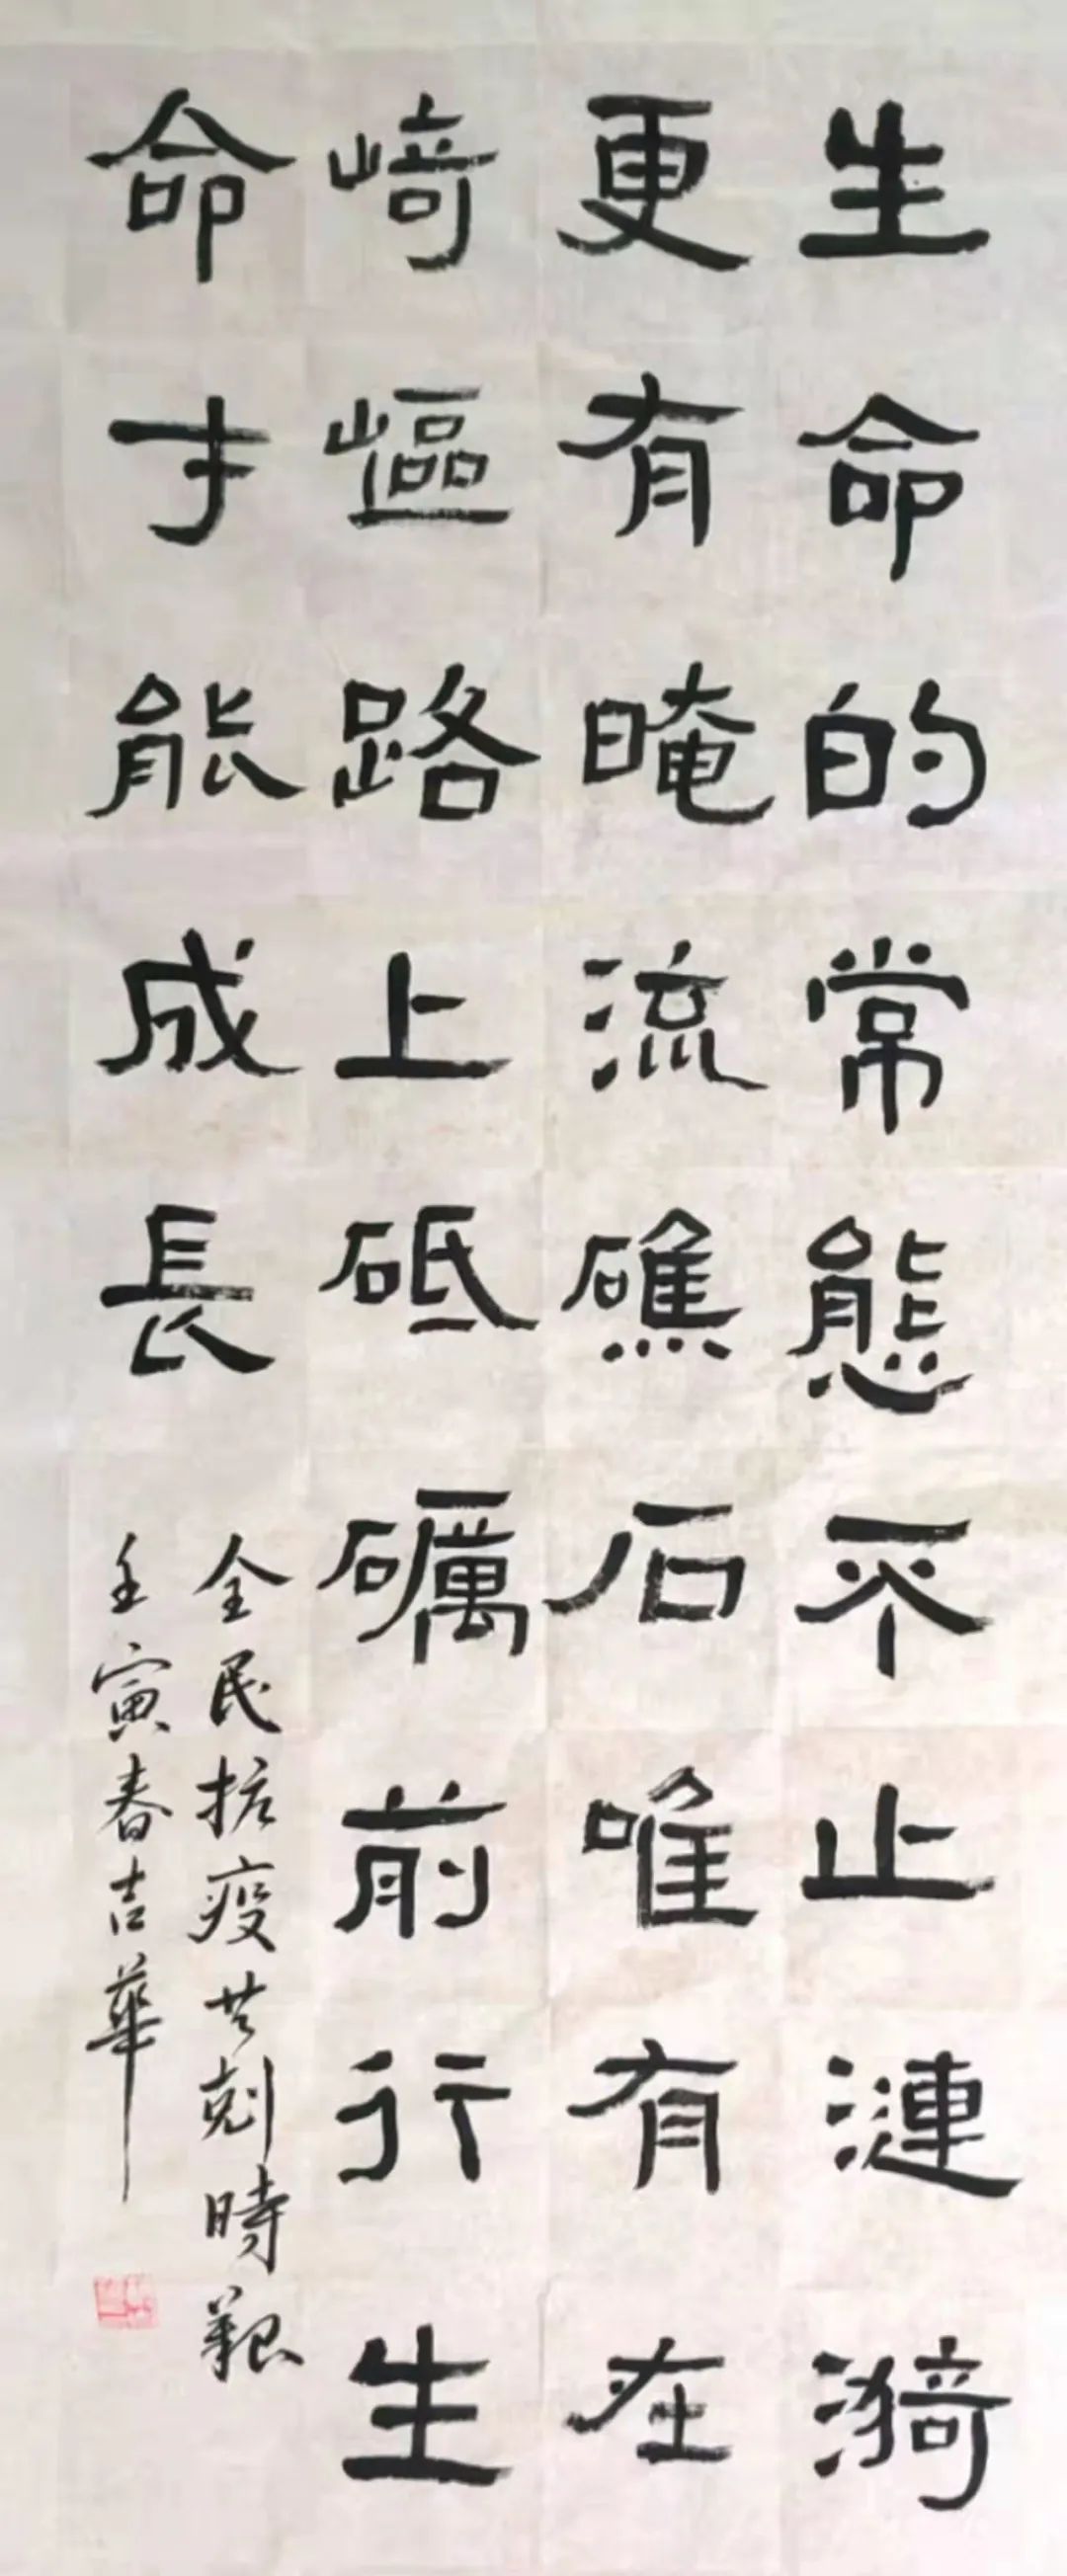 生命的常態不止漣漪
更有晻流礁石唯有在
崎嶇路上砥礪前行生
命才能成長
全民抗疫共剋時艱
壬寅春吉華